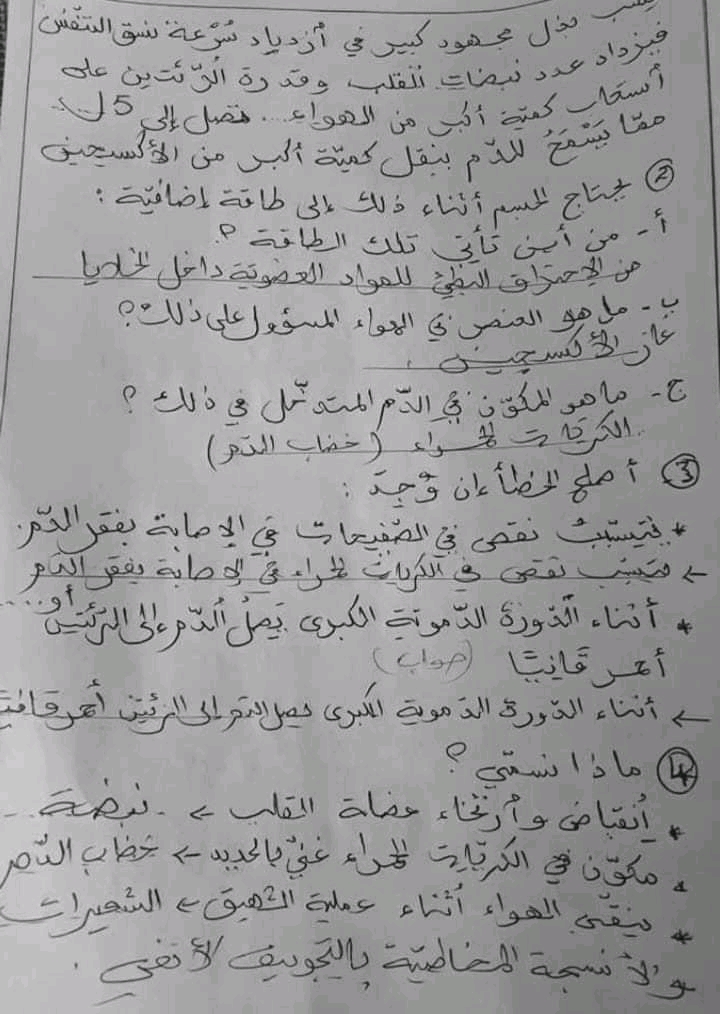 بذل مجهود كبير في أزدياد سُرْعة نسق التنفّس
فيزداد عدد نبضات القلب وقدرة الرّئتين على
أستعاب كميّة أكبر من الهواء... تصل إلى 5ل
ممّا يَسْمَحُ للدّم بنقل كميّة أكبر من الأكسجين
② يحتاج الجسم أثناء ذلك إلى طاقة إضافيّة :
أ - من أين تأتي تلك الطاقة ؟
من الإحتراق البطيء للمواد العضوية داخل الخلايا
ب - ما هو العنصر في الهواء المسؤول على ذلك؟
غاز الأكسجين .
ج - ما هو المكوّن في الدّم المتدخّل في ذلك ؟
الكريّات الحمراء (خضاب الدّم)
③ أصلح الخطأ إن وُجِدَ :
* يتسبّب نقص في الصّفيحات في الإصابة بفقر الدّم.
← يتسبّب نقص في الكريّات الحمراء في الإصابة بفقر الدّم
أو...
* أثناء الدّورة الدّمويّة الكبرى يَصلُ الدّم إلى الرّئتين
أحمر قانيّا (صواب)
← أثناء الدّورة الدّموية الكبرى يصل الدّم إلى الرّئتين أحمر
④ ماذا نسمّي ؟
* إنقباض وأرتخاء عضلة القلب ← نبضة...
* مكوّن في الكريّات الحمراء غنيّ بالحديد ← خضاب الدّم
* ينقّى الهواء أثناء عملية الشهيق ← الشعيرات
والأنسجة المخاطيّة بالتجويف الأنفي .